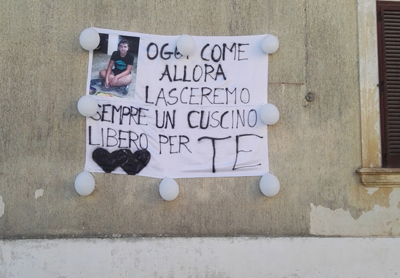 OGGI COME
ALLORA
LASCEREMO
SEMPRE UN CUSCINO
LIBERO PER TE